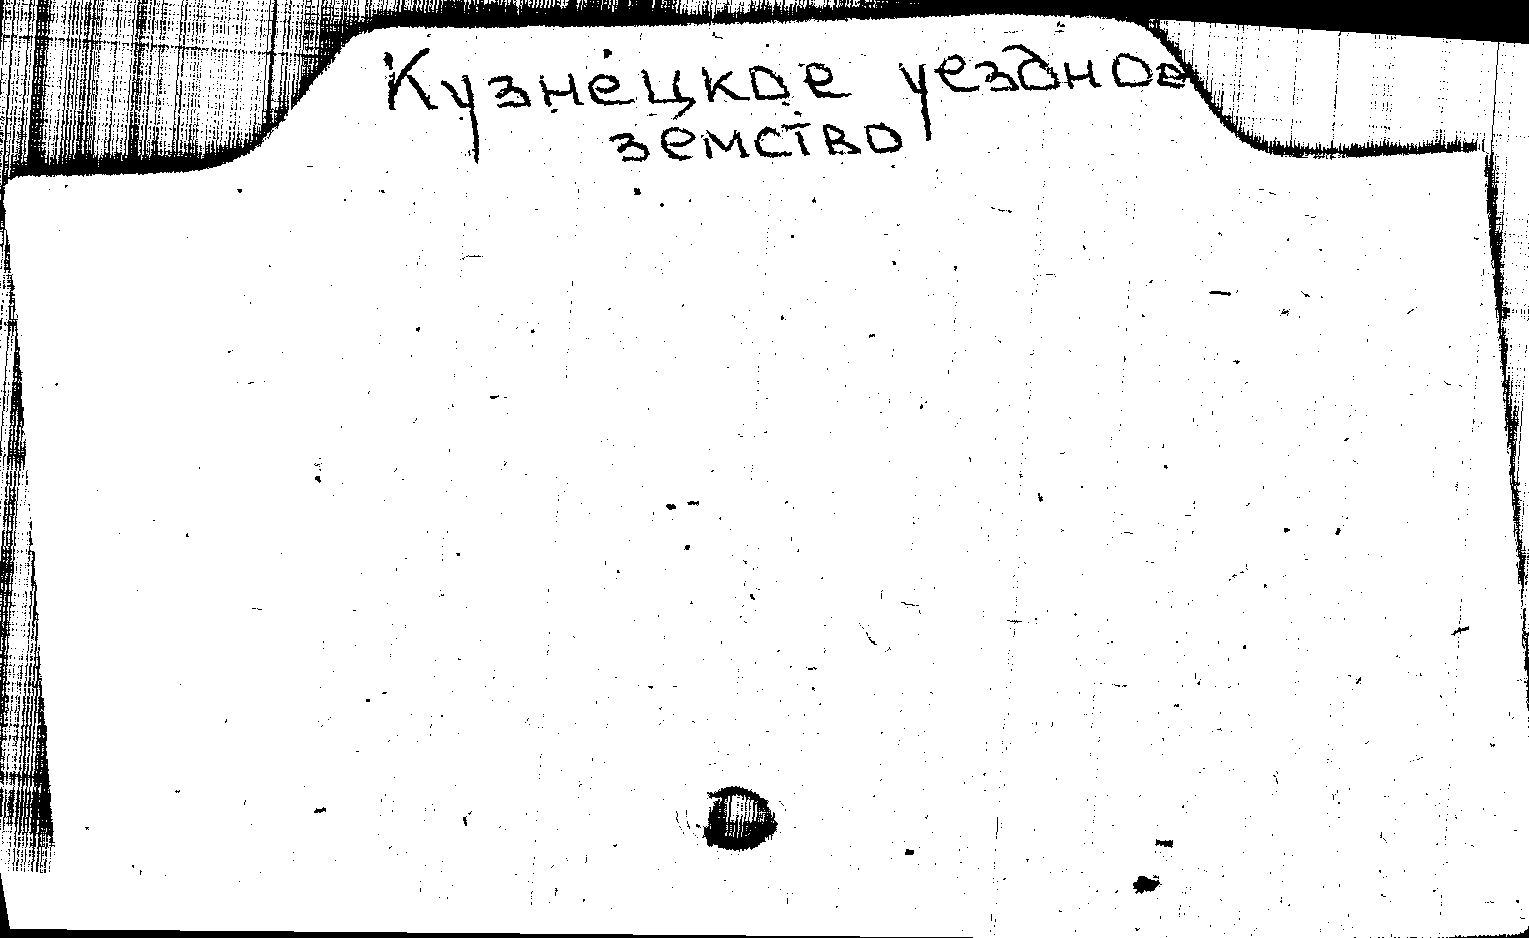 Кузнецкое уездное
земство